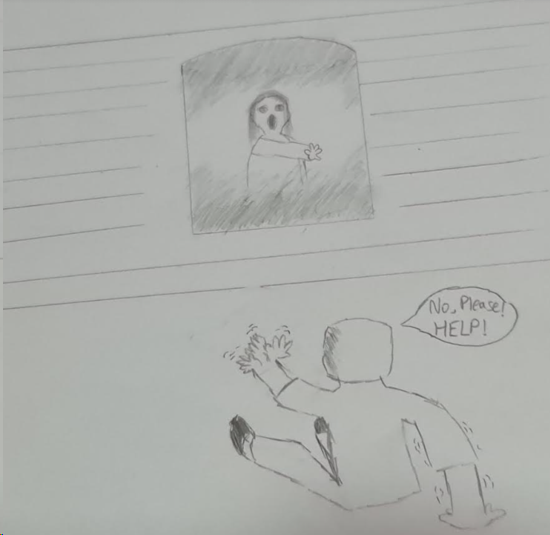 No, Please!
HELP!